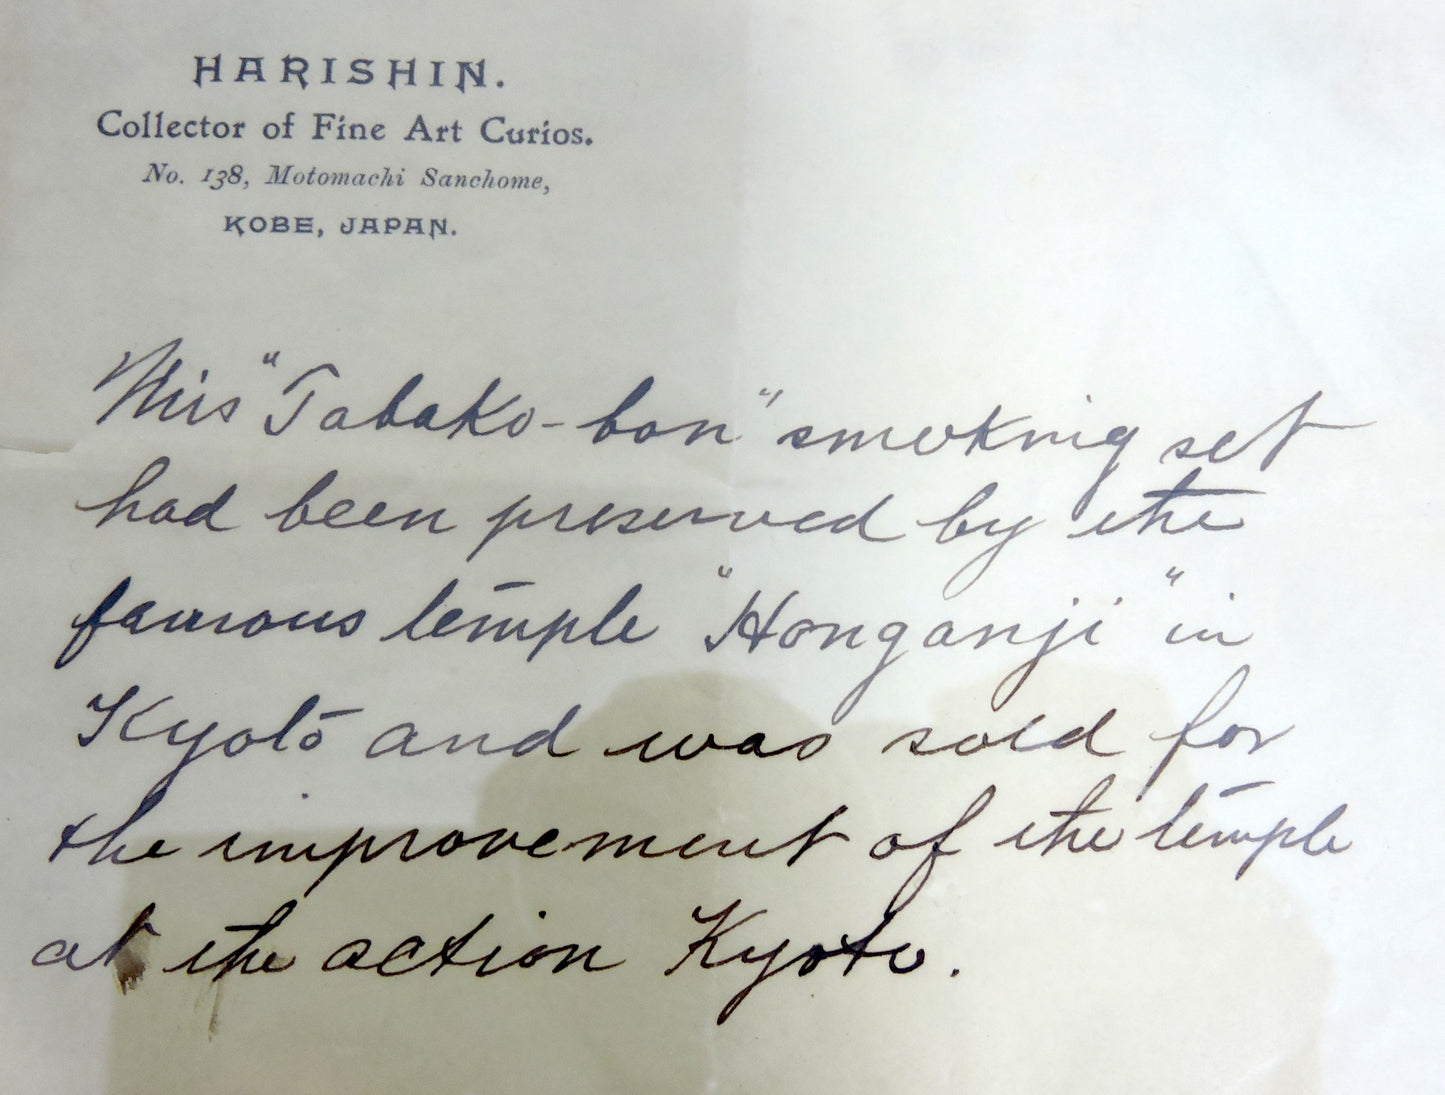 HARISHIN.
Collector of Fine Art Curios.
No. 138, Motomachi Sanchome,
KOBE, JAPAN.
This "Tabako-bon" smoking set
had been preserved by the
famous temple "Honganji" in
Kyoto and was sold for
the improvement of the temple
at the action Kyoto.